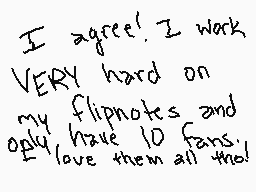 I agree! I work
VERY hard on
my flipnotes and
only have 10 fans.
love them all tho!